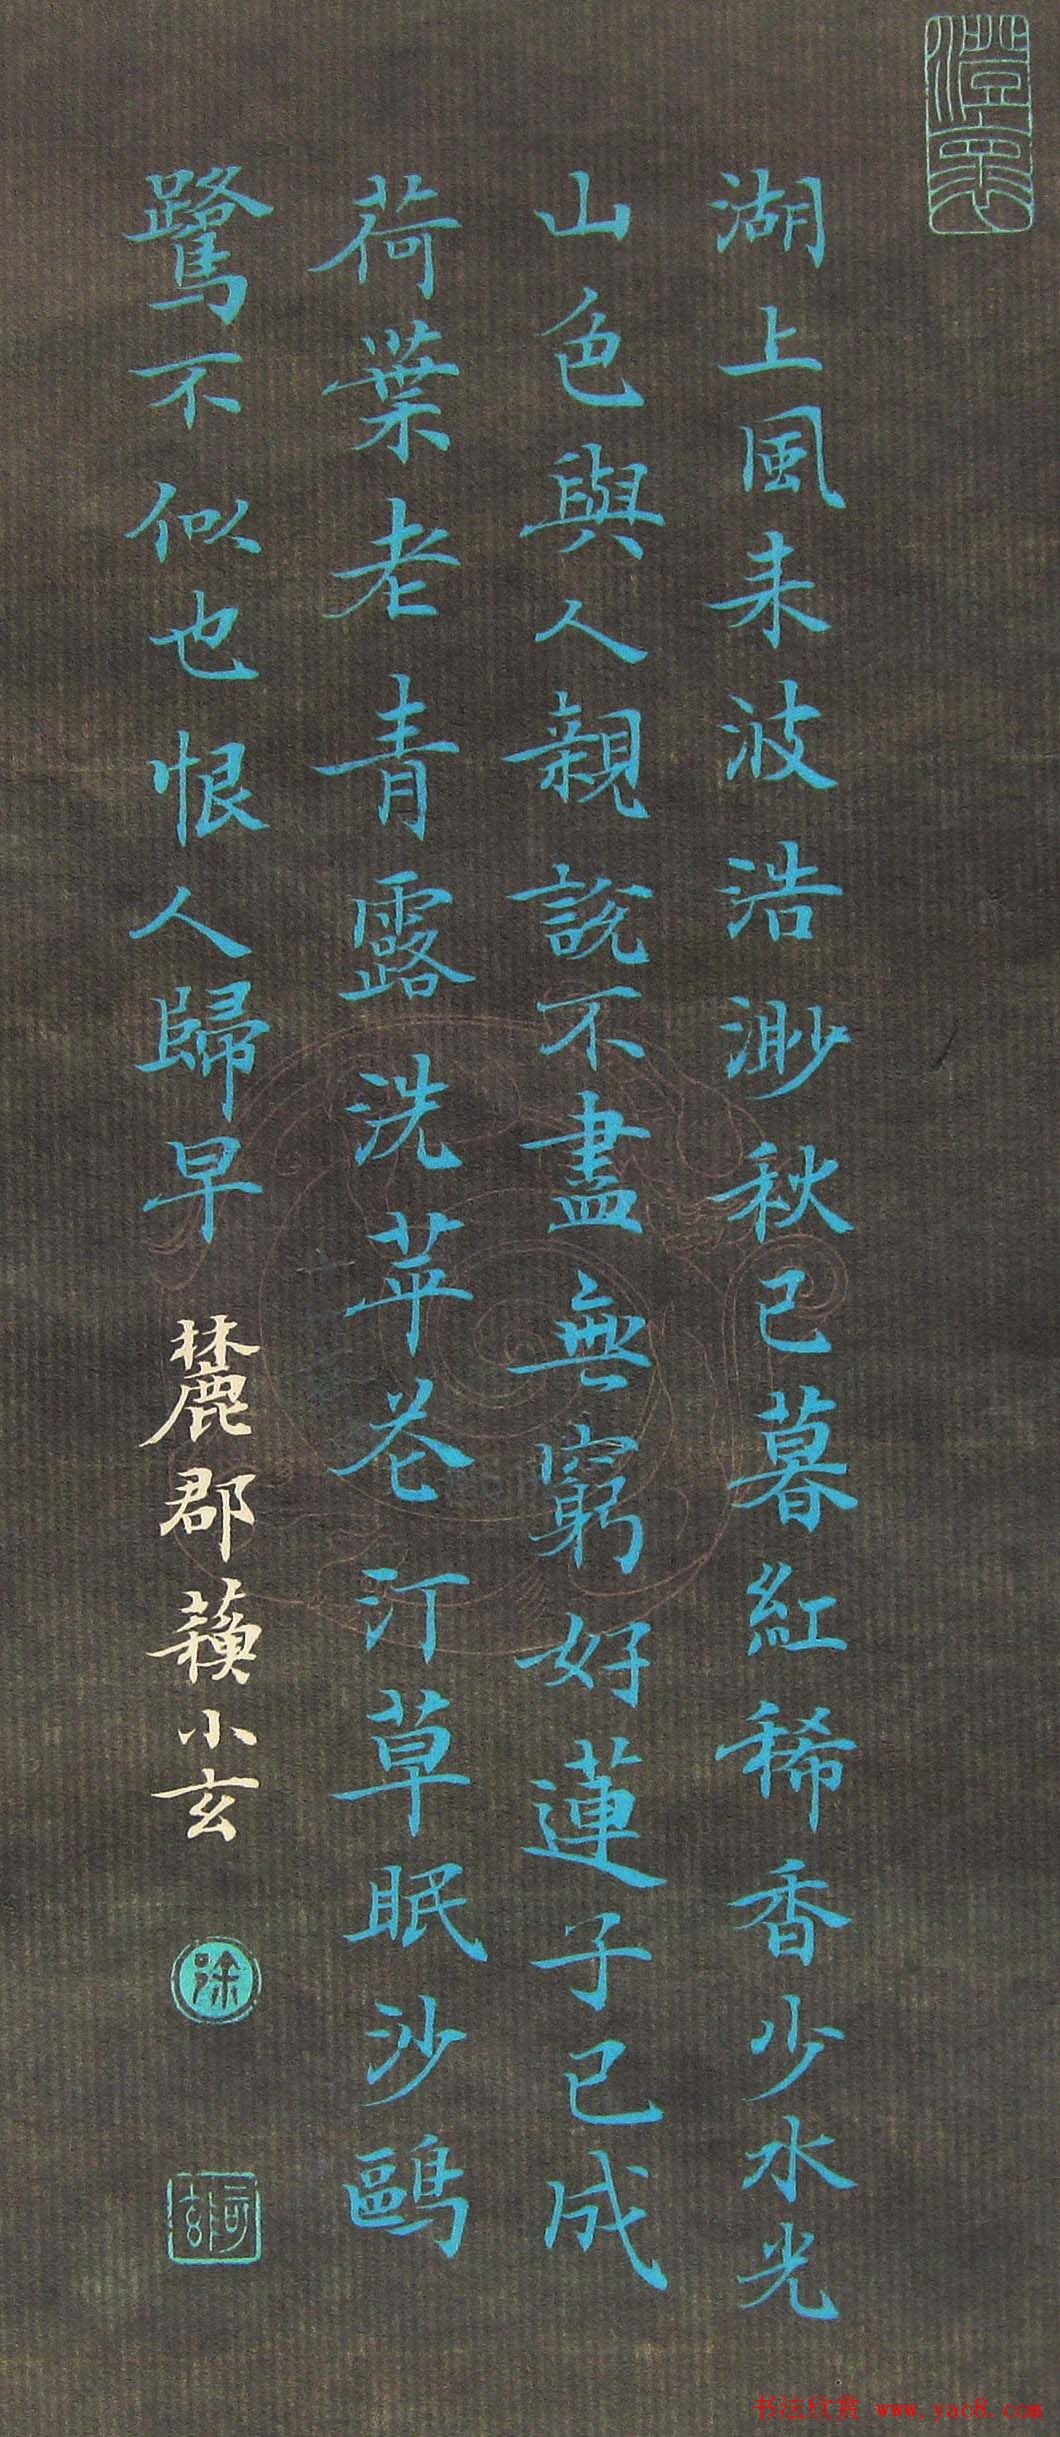 湖上風来波浩渺秋已暮紅稀香少水光
山色與人親說不盡無窮好蓮子已成
荷葉老青露洗苹花汀草眠沙鷗
鷺不似也恨人歸早
麓郡蘋小玄
徐
书法欣赏 www.yac8.com